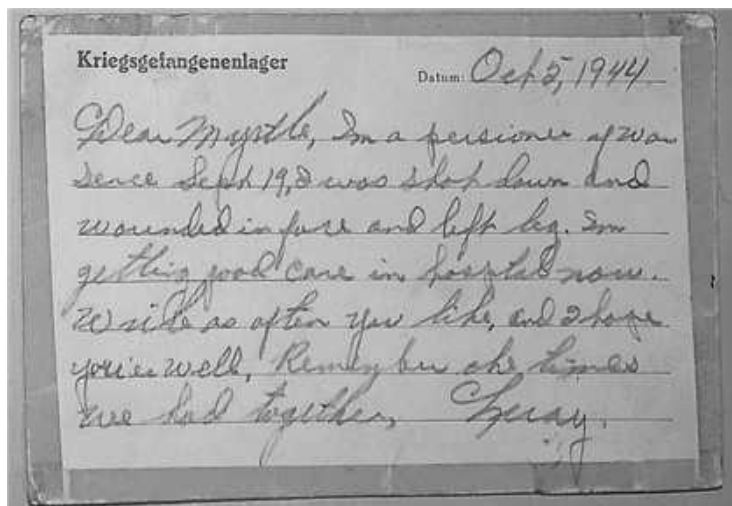 Kriegsgefangenenlager
Datum: Oct 5, 1944
Dear Myrtle, Im a persioner of war
sence Sept 19, I was shot down and
wounded in face and left leg. Im
getting good care in hospital now.
Write as often you like, and I hope
you'er well, Remember the times
we had together,